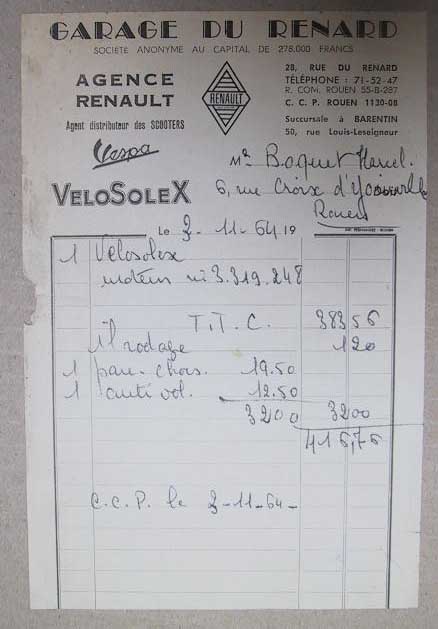 GARAGE DU RENARD
SOCIÉTÉ ANONYME AU CAPITAL DE 278.000 FRANCS
AGENCE
RENAULT
Agent distributeur des SCOOTERS
Vespa
VELOSOLEX
RENAULT
28, RUE DU RENARD
TÉLÉPHONE : 71-52-47
R. COM. ROUEN 55-B-287
C. C. P. ROUEN 1130-08
Succursale à BARENTIN
50, rue Louis-Leseigneur
Mr Boquet Marcel.
6, rue Croix d'Yonville
Rouen
Le 2-11-64 19
1 Velosolex
moteur n° 3.319.248
T.T.C. 383 56
1l rodage 1 20
1 pare-chocs. 19.50
1 anti vol. 12.50
32 00 32 00
416,76
C.C.P. le 2-11-64-